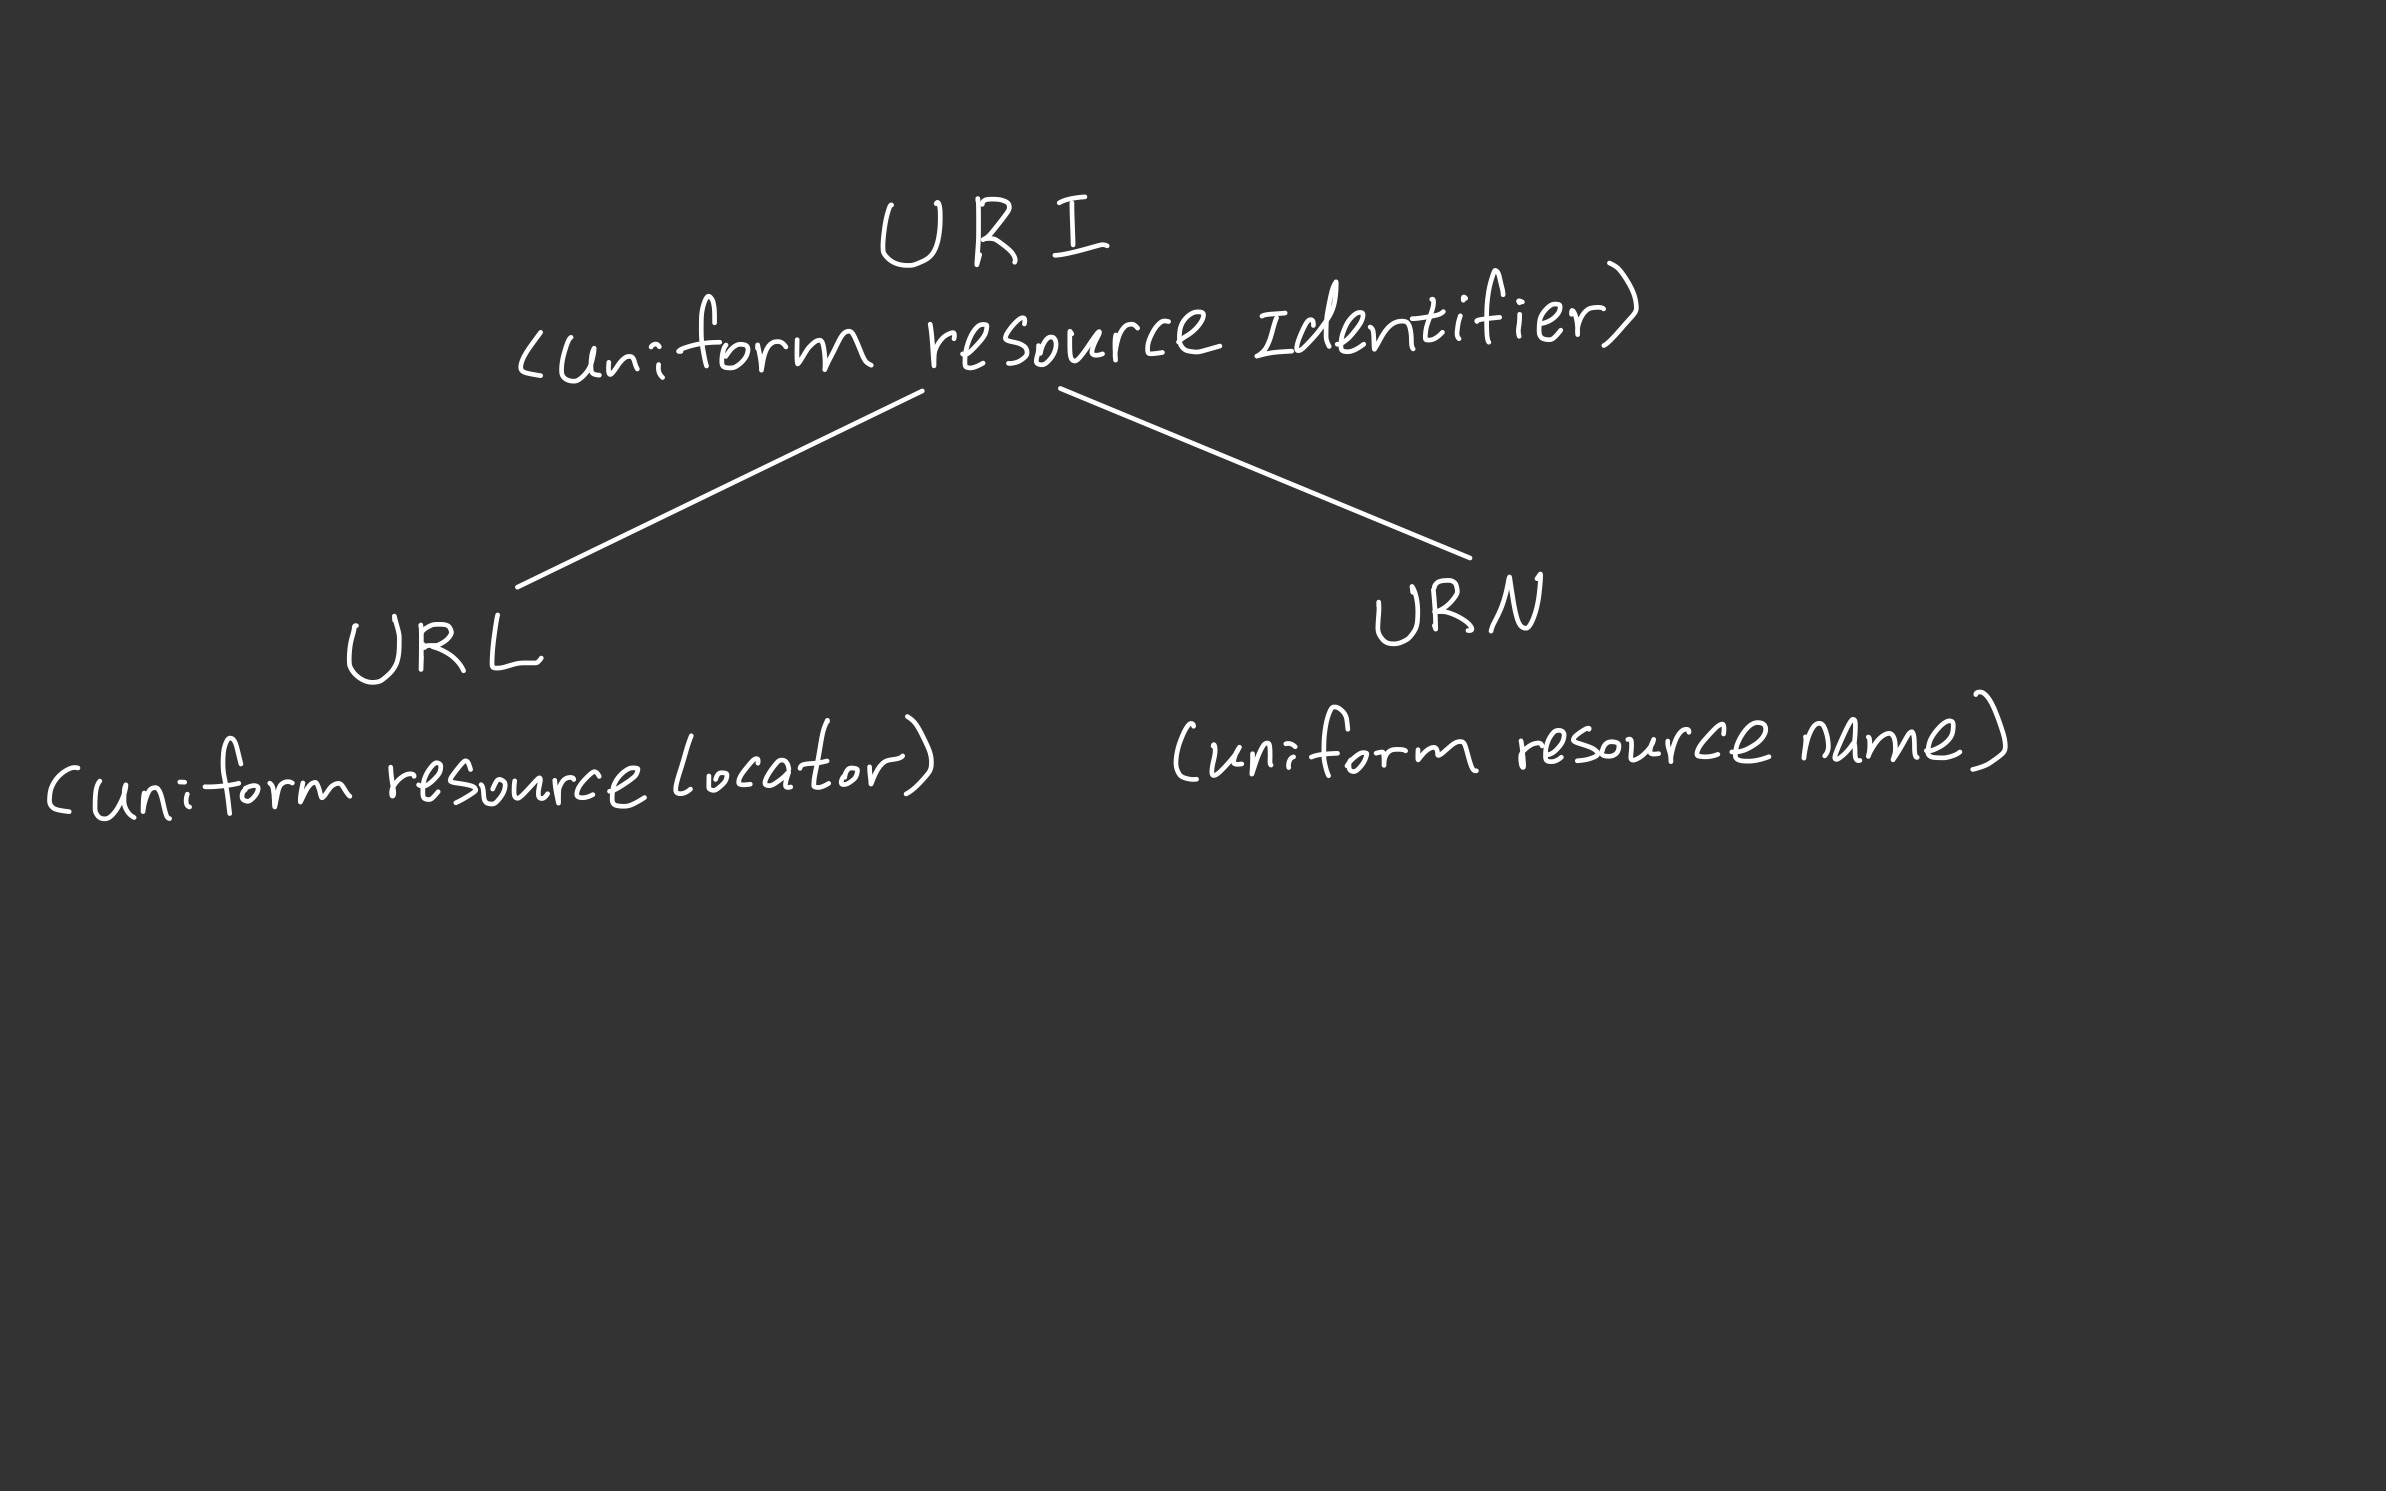 URI
(uniform resource Identifier)
URL
URN
(uniform resource locator)
(uniform resource name)